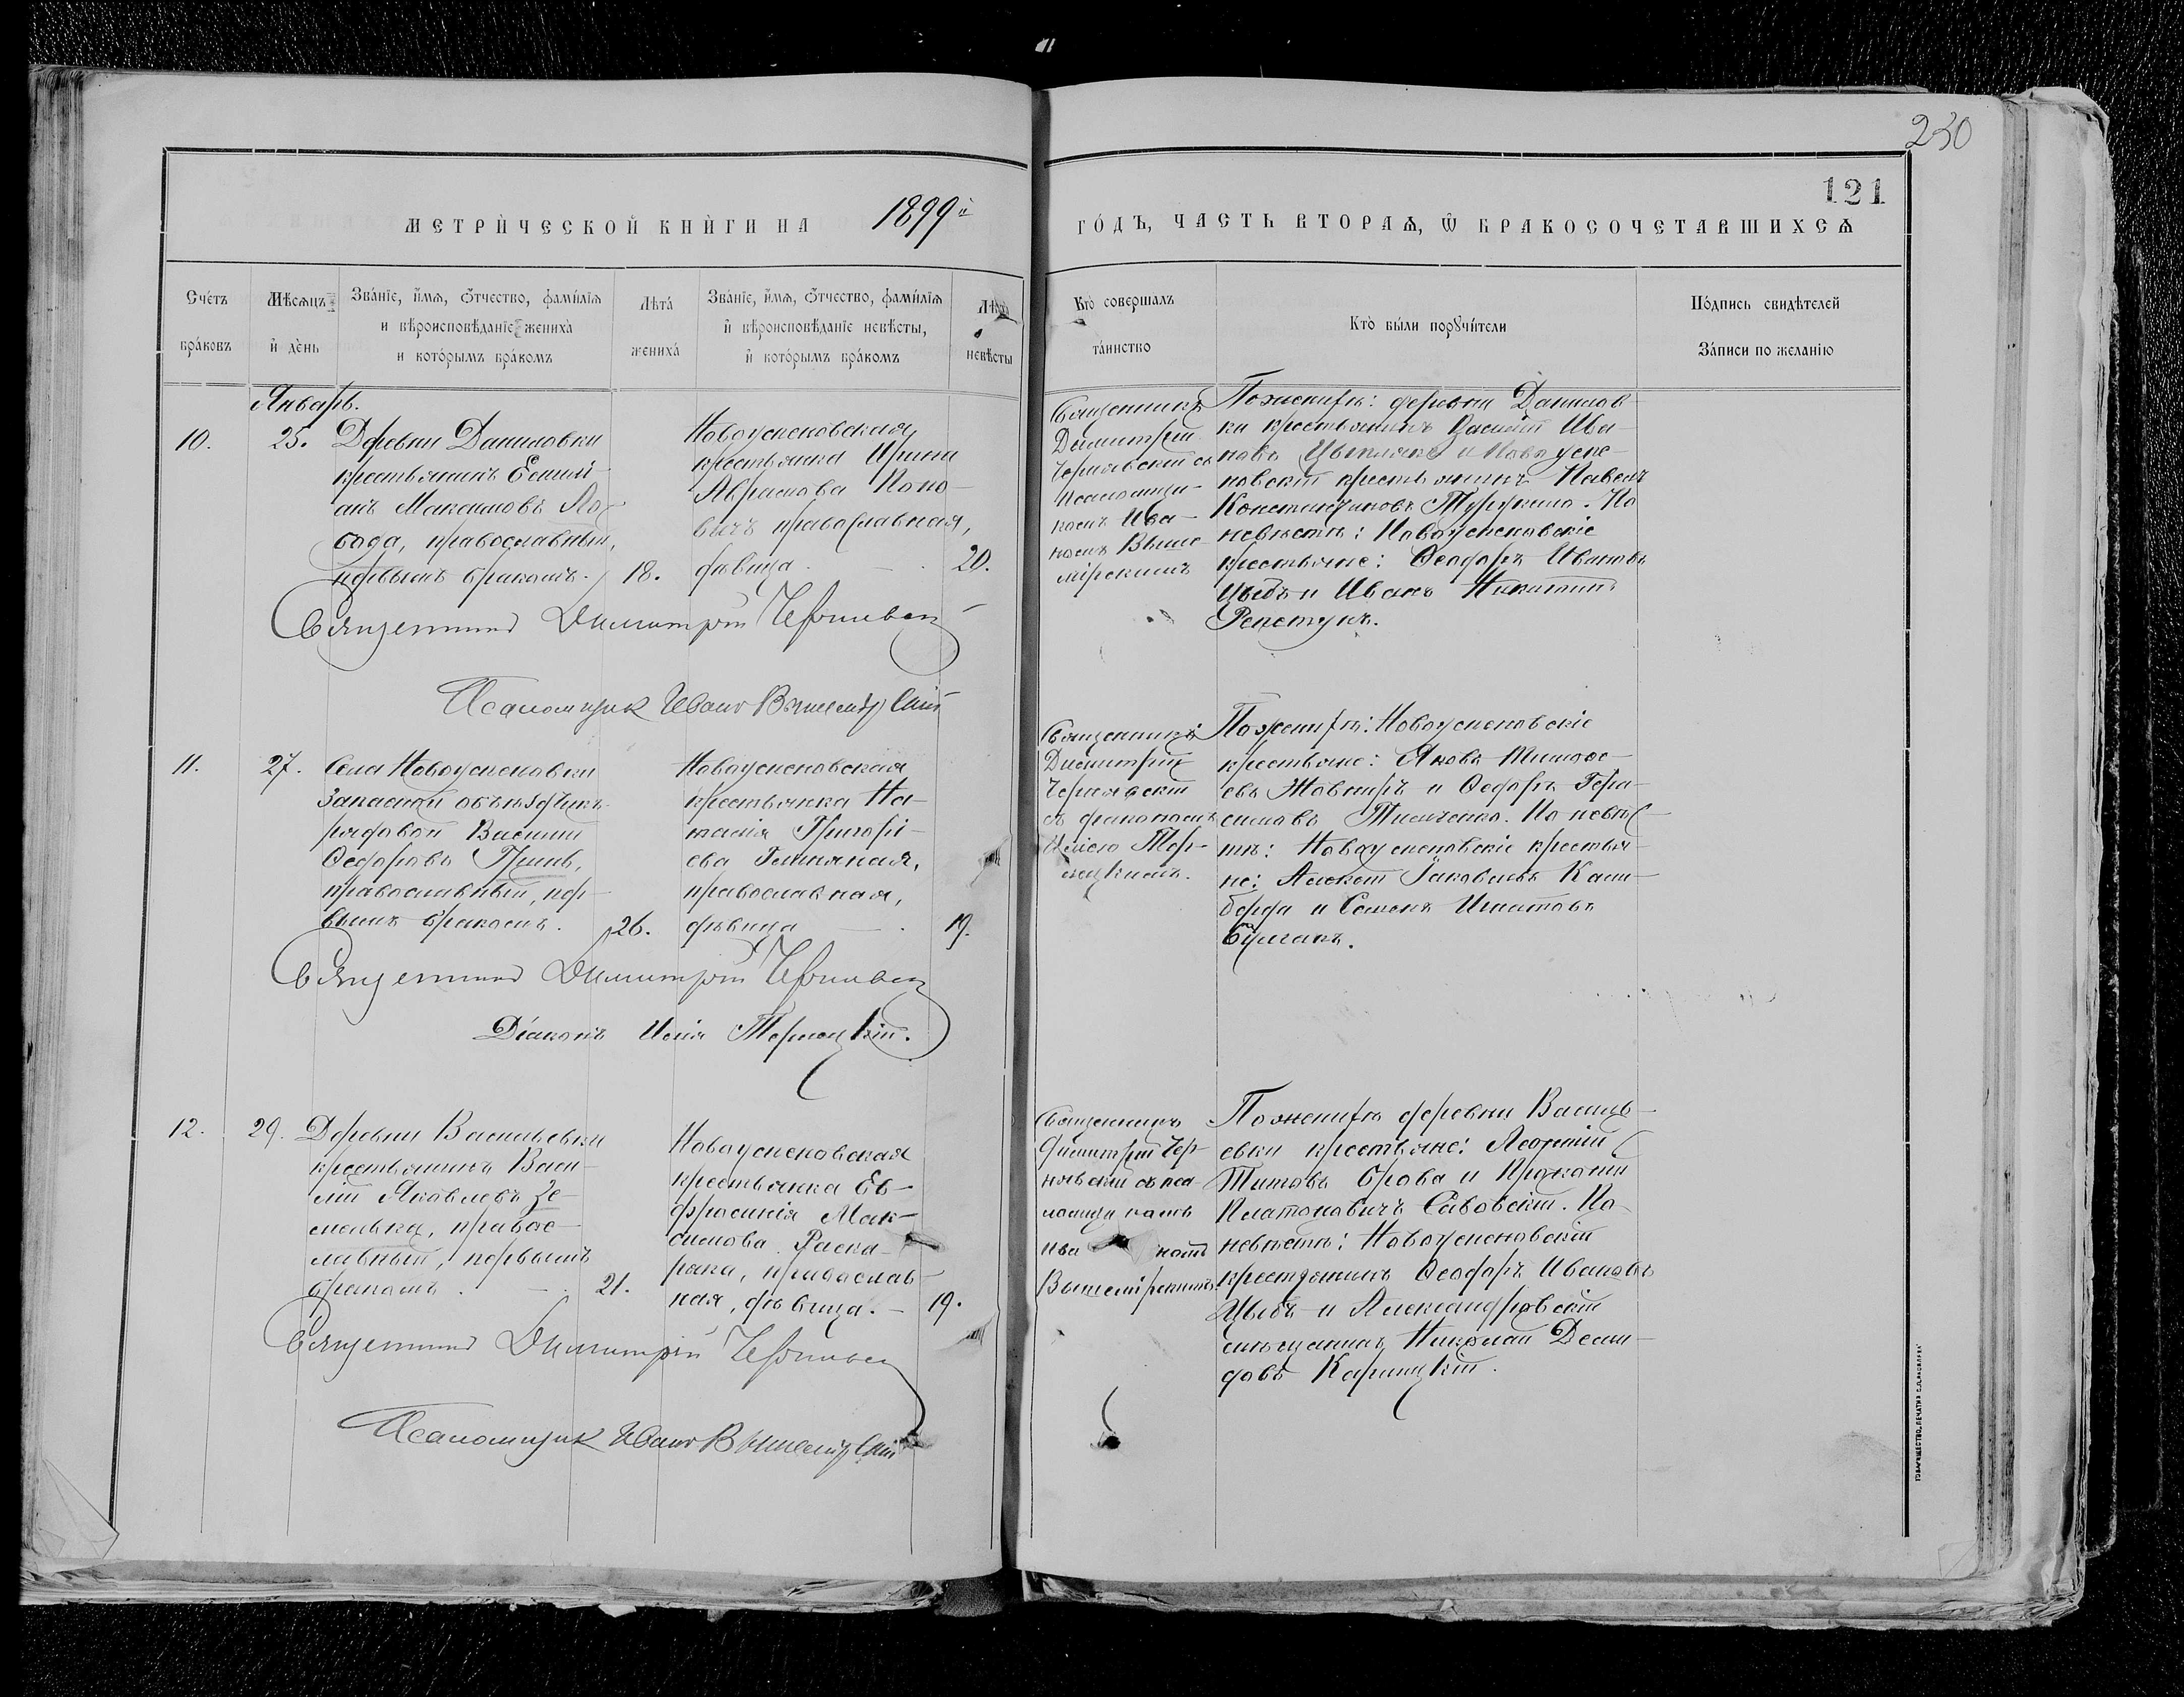 230
121
МЕТРИ́ЧЕСКОЙ КНИ́ГИ НА 1899й
ГО́ДЪ, ЧАСТЬ ВТОРАѦ, Ѿ БРАКОСОЧЕТАВШИХСѦ
Сче́тъ
бра́ковъ
Мѣ́сяцъ
и҆ де́нь
Зва́нїе, и҆́мѧ, ѻ҆́тчество, фами́лїѧ
и вѣроисповѣ́данїе жениха̀
и кото́рымъ бра́комъ
Лѣта́
жениха́
Зва́нїе, и҆́мѧ, ѻ҆́тчество, фами́лїѧ
и҆ вѣроисповѣ́данїе невѣ́сты,
и҆ кото́рымъ бра́комъ
Лѣта́
невѣ́сты
Кто̀ совершалъ
та́инство
Кто̀ бы́ли порꙋчи́тели
По́дпись свидѣ́телей
За́писи по жела́нїю
Январь.
10.
25.
Деревни Даниловки
крестьянинъ Емилі-
анъ Максимовъ Ло-
бода, православный,
первымъ бракомъ.
18.
Новоуспеновская
крестьянка Ирина
Абрамова Попо-
вичъ православная,
дѣвица
20.
Священникъ
Димитрій
Чернявскій съ
псаломщи-
комъ Ива-
номъ Выше-
мірскимъ
По женихѣ: деревни Данилов-
ки крестьянинъ Василій Ива-
новъ и Новоуспе-
новскій крестьянинъ Павелъ
Константиновъ . По
невѣстѣ: Новоуспеновскіе
крестьяне: Ѳеодоръ Ивановъ
Цыбъ и Иванъ Никитинъ
Репетунъ.
Священникъ Димитрій Чернявскій
Псаломщикъ Иванъ Вышемірскій
11.
27.
Села Новоуспеновки
Запасной объѣздчикъ
рядовой Василій
Ѳедоровъ Гринь,
православный, пер-
вымъ бракомъ.
26.
Новоуспеновская
крестьянка На-
талія Григорі-
ева
православная,
дѣвица
19.
Священникъ
Димитрій
Чернявскій
съ діакономъ
По женихѣ: Новоуспеновскіе
крестьяне: Яковъ Тимоѳе-
евъ Жовниръ и Ѳедоръ Гера-
симовъ Тимченко. По невѣс-
тѣ: Новоуспеновскіе крестья-
не: Алексѣй Іаковлевъ Кали-
берда и Семенъ Игнатовъ
Священникъ Димитрій Чернявскій
Діаконъ
12.
29.
Деревни Васильевки
крестьянинъ Васи-
лій Яковлевъ Зе-
мелька, правос-
лавный, первымъ
бракомъ
21.
Новоуспеновская
крестьянка Ев-
фросинія Мак-
симова
православ-
ная, дѣвица.
19.
Священникъ
Димитрій Чер-
нявскій съ пса-
ломщикомъ
Ива номъ
Вышемірскимъ
По женихѣ деревни Василь-
евки крестьяне: Леонтій
Титовъ и Прокопій
Платоновичъ Савовскій. По
невѣстѣ: Новоуспеновскій
крестьянинъ Ѳеодоръ Ивановъ
Цыбъ и Александровскій
мѣщанинъ Николай Деми-
довъ Карницкій.
Священникъ Димитрій Чернявскій
Псаломщикъ Иванъ Вышемірскій